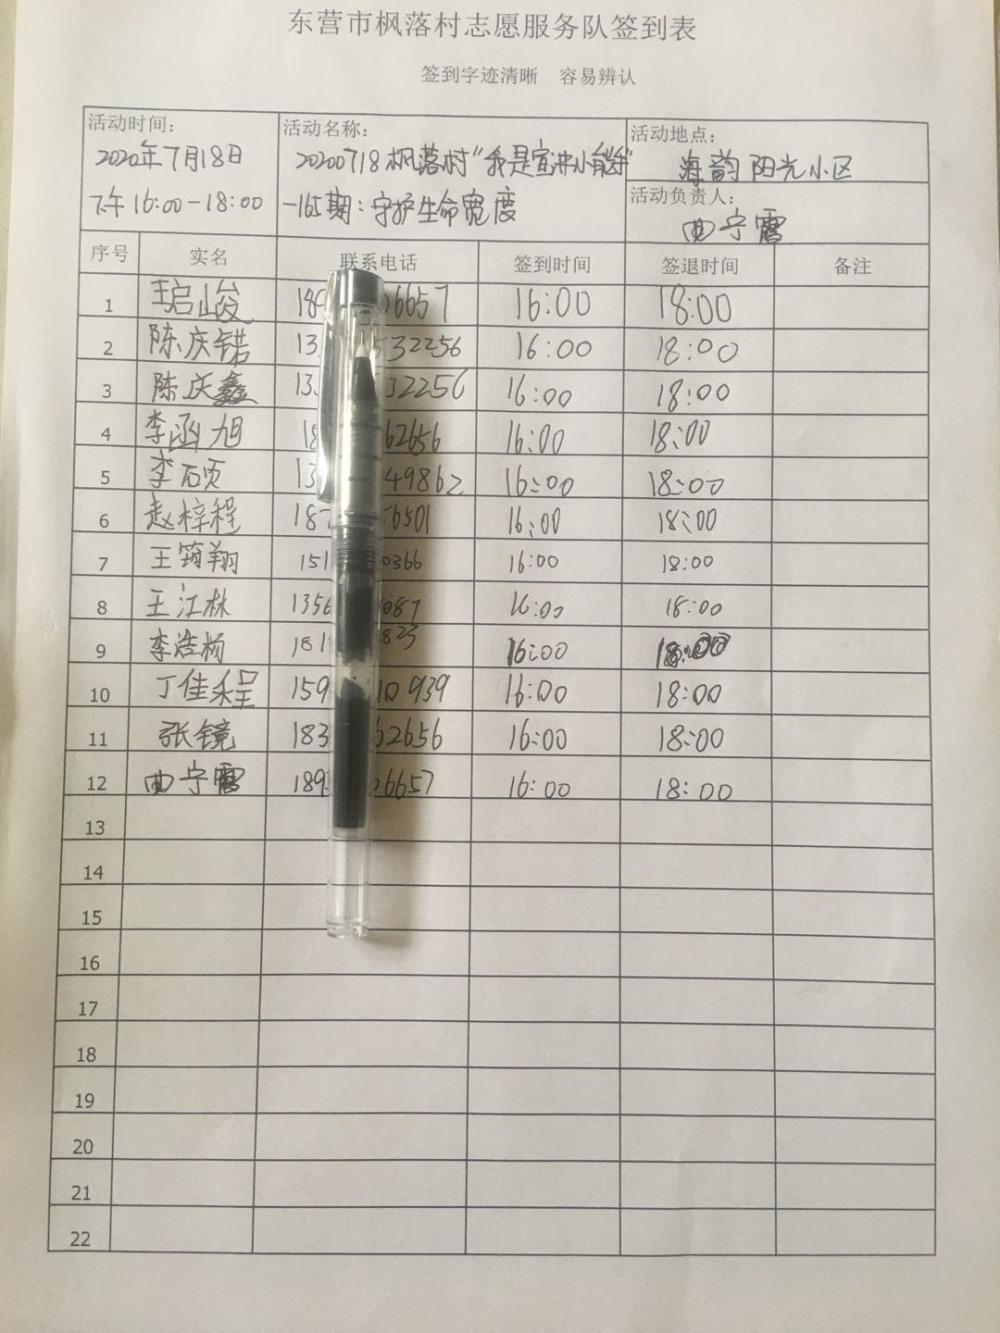 东营市枫落村志愿服务队签到表
签到字迹清晰 容易辨认
活动时间: 活动名称: 活动地点:
2020年7月18日 20200718枫落村“我是宣讲小能手” 海韵阳光小区
下午16:00-18:00 -165期:守护生命宽度 活动负责人:
曲宁
序号 实名 联系电话 签到时间 签退时间 备注
1 王启峻 18 6657 16:00 18:00
2 陈庆锴 13 532256 16:00 18:00
3 陈庆鑫 13 32256 16:00 18:00
4 李函旭 18 62656 16:00 18:00
5 李硕 13 49862 16:00 18:00
6 赵梓程 187 6501 16:00 18:00
7 王筠翔 151 0366 16:00 18:00
8 王江林 1356 087 16:00 18:00
9 李浩杨 181 823 16:00 18:00
10 丁佳程 159 10939 16:00 18:00
11 张镜 183 62656 16:00 18:00
12 曲宁 189 6657 16:00 18:00
13
14
15
16
17
18
19
20
21
22